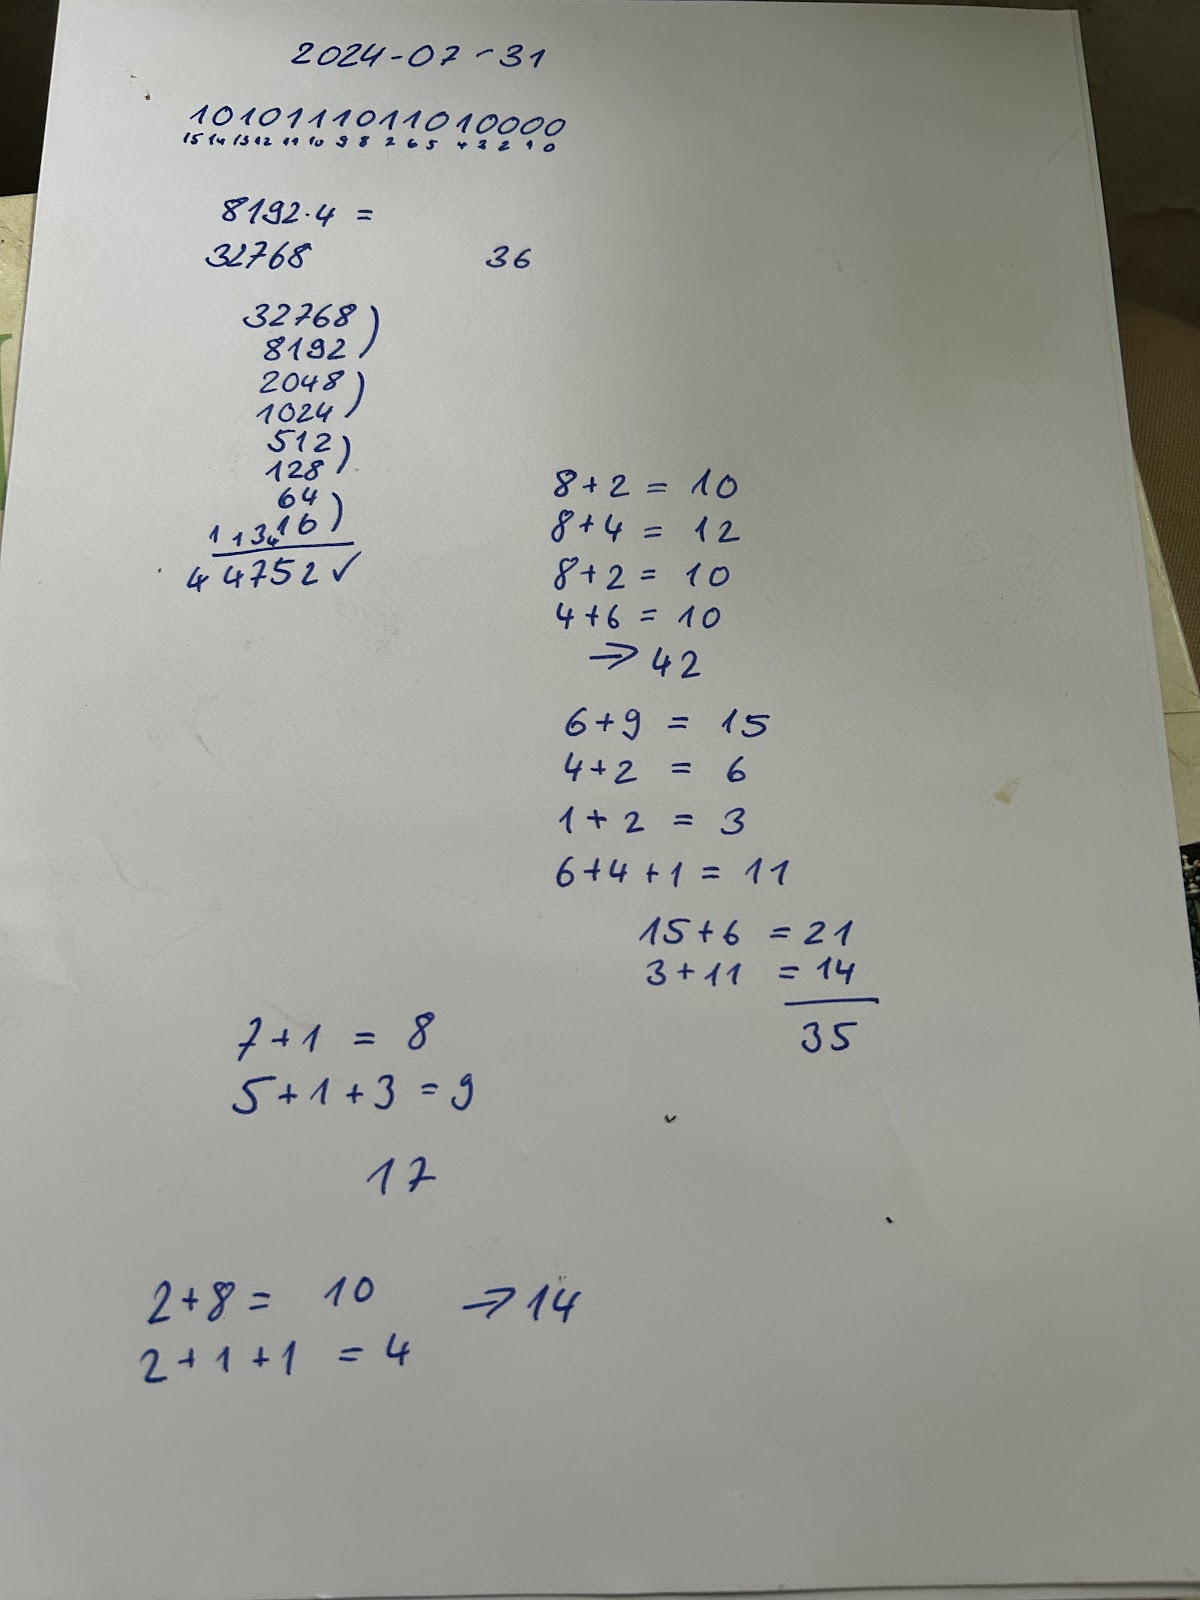 2024-07-31
1010111011010000
15 14 13 12 11 10 9 8 7 6 5 4 3 2 1 0
8192·4 =
32768 36
32768)
8192)
2048)
1024)
512)
128)
64)
16)
1 1 3 4
44752✓
8+2 = 10
8+4 = 12
8+2 = 10
4+6 = 10
⇒ 42
6+9 = 15
4+2 = 6
1+2 = 3
6+4+1 = 11
15+6 = 21
3+11 = 14
35
7+1 = 8
5+1+3 = 9
17
2+8 = 10 ⇒ 14
2+1+1 = 4